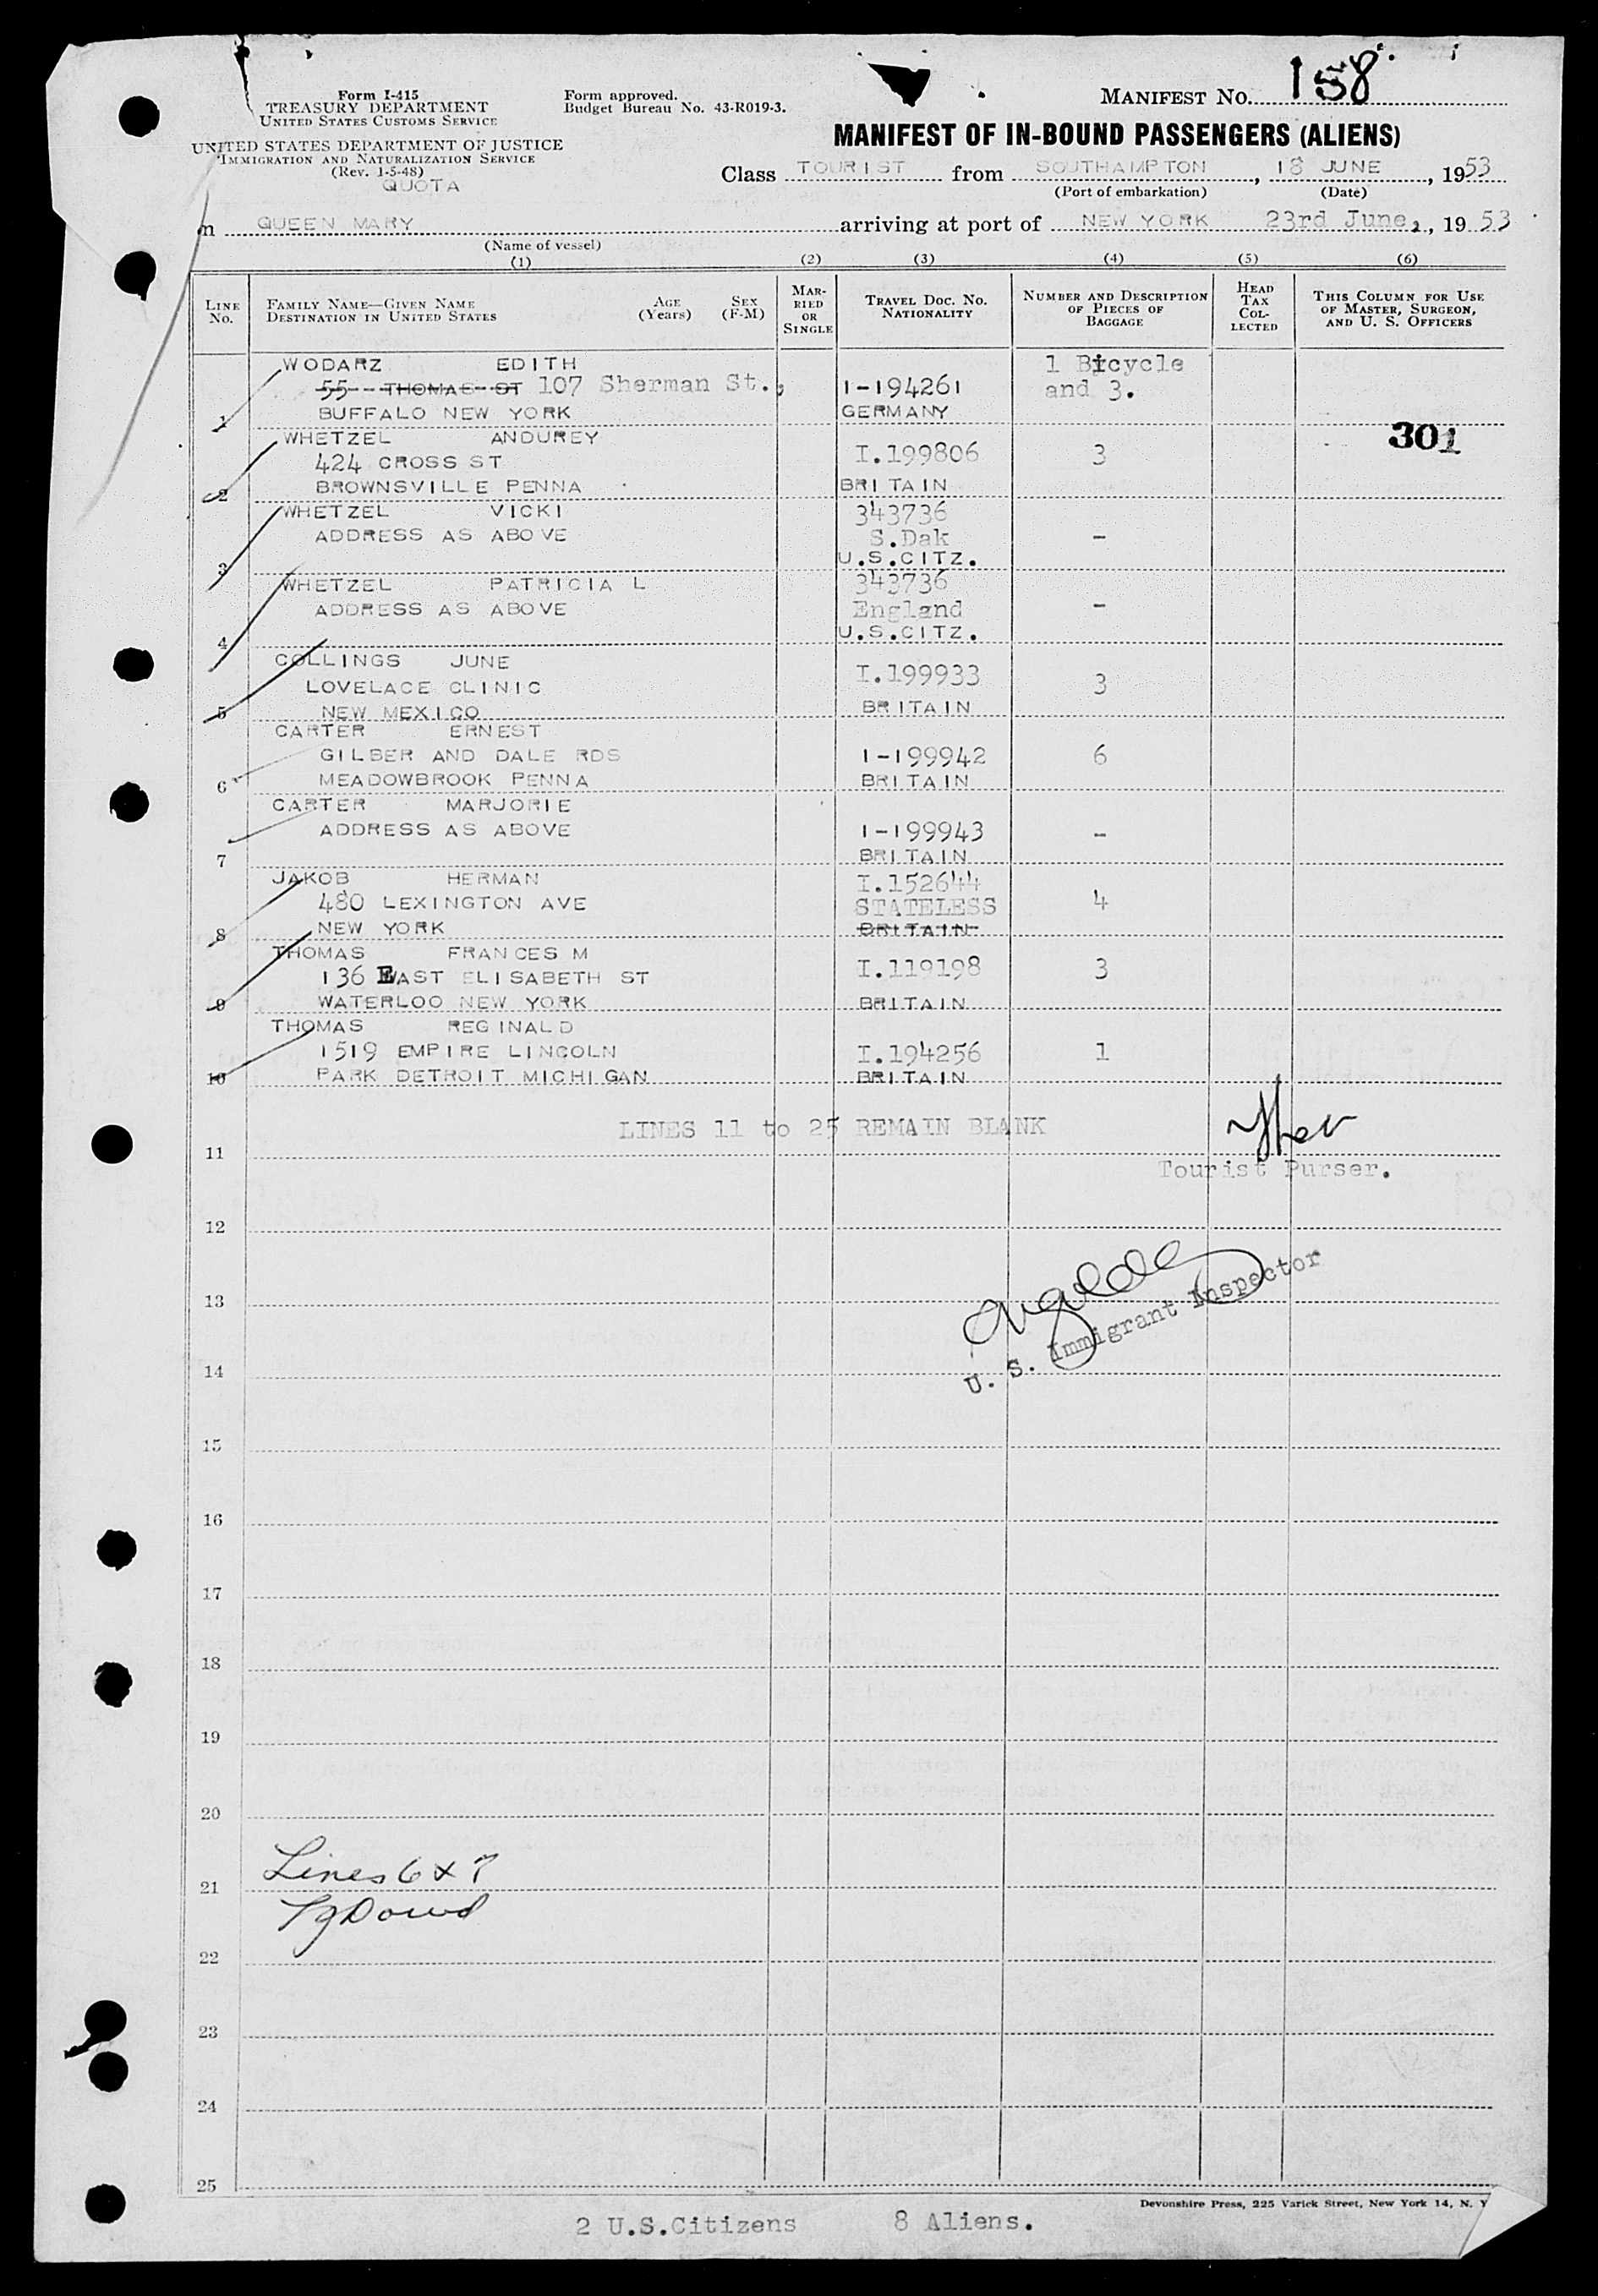 158
Form I-415
TREASURY DEPARTMENT
UNITED STATES CUSTOMS SERVICE
Form approved.
Budget Bureau No. 43-R019-3.
MANIFEST NO. 158
UNITED STATES DEPARTMENT OF JUSTICE
IMMIGRATION AND NATURALIZATION SERVICE
(Rev. 1-5-48)
QUOTA
MANIFEST OF IN-BOUND PASSENGERS (ALIENS)
Class TOURIST from SOUTHAMPTON, 18 JUNE, 1953
(Port of embarkation) (Date)
n QUEEN MARY arriving at port of NEW YORK 23rd June,, 1953
(Name of vessel)
(1) (2) (3) (4) (5) (6)
LINE NO. FAMILY NAME—GIVEN NAME DESTINATION IN UNITED STATES AGE (Years) SEX (F-M) MARRIED OR SINGLE TRAVEL DOC. NO. NATIONALITY NUMBER AND DESCRIPTION OF PIECES OF BAGGAGE HEAD TAX COLLECTED THIS COLUMN FOR USE OF MASTER, SURGEON, AND U. S. OFFICERS
WODARZ EDITH 1 Bicycle
55 THOMAS ST 107 Sherman St., I-194261 and 3.
1 BUFFALO NEW YORK GERMANY
WHETZEL ANDUREY 301
424 CROSS ST I.199806 3
2 BROWNSVILLE PENNA BRITAIN
WHETZEL VICKI 343736
ADDRESS AS ABOVE S.Dak -
3 U.S.CITZ.
WHETZEL PATRICIA L 343736
ADDRESS AS ABOVE England -
4 U.S.CITZ.
COLLINGS JUNE I.199933
LOVELACE CLINIC 3
5 NEW MEXICO BRITAIN
CARTER ERNEST
GILBER AND DALE RDS I-199942 6
6 MEADOWBROOK PENNA BRITAIN
CARTER MARJORIE
ADDRESS AS ABOVE I-199943 -
7 BRITAIN
JAKOB HERMAN I.152644
480 LEXINGTON AVE STATELESS 4
8 NEW YORK BRITAIN
THOMAS FRANCES M
136 EAST ELISABETH ST I.119198 3
9 WATERLOO NEW YORK BRITAIN
THOMAS REGINALD
1519 EMPIRE LINCOLN I.194256 1
10 PARK DETROIT MICHIGAN BRITAIN
LINES 11 to 25 REMAIN BLANK
11
Tourist Purser.
12
13
U. S. Immigrant Inspector
14
15
16
17
18
19
20
Lines 6 & 7
21
22
23
24
25
Devonshire Press, 225 Varick Street, New York 14, N. Y
2 U.S.Citizens 8 Aliens.